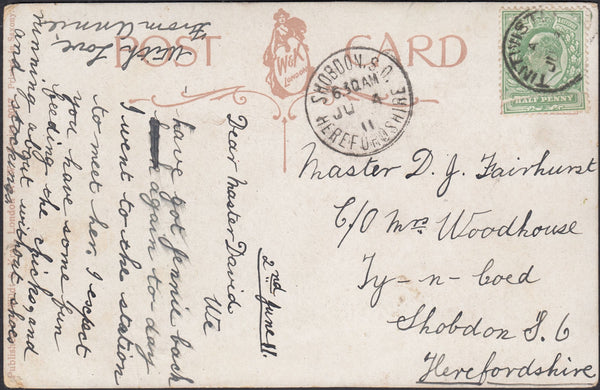 POST CARD
W&K
London
SHOBDON. S.O.
630AM
JU 4
11
HEREFORDSHIRE
HALF PENNY
2nd June 11.
Dear Master David
We
have got Jennie back
again to day
I went to the station
to meet her, I expect
you have some fun
feeding the chicks, and
running about without shoes
and stockings.
With Love
From Annie
Master D. J. Fairhurst
C/O Mrs Woodhouse
Ty-n-Coed
Shobdon S.O
Herefordshire